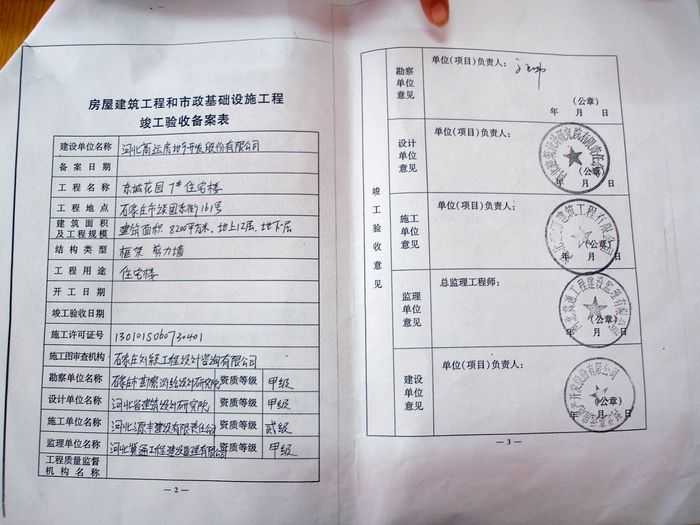 房屋建筑工程和市政基础设施工程
竣工验收备案表
建设单位名称 河北高远房地产开发股份有限公司
备案日期
工程名称 东城花园 7# 住宅楼
工程地点 石家庄市谈固东街161号
建筑面积及工程规模 建筑面积 8200平方米、地上12层、地下一层
结构类型 框架 剪力墙
工程用途 住宅楼
开工日期
竣工验收日期
施工许可证号 1301015060730401
施工图审查机构 石家庄 工程设计咨询有限公司
勘察单位名称 石家庄市勘察测绘设计研究院 资质等级 甲级
设计单位名称 河北省建筑设计研究院 资质等级 甲级
施工单位名称 河北源丰建设有限责任公司 资质等级 贰级
监理单位名称 河北冀通工程建设监理有限公司 资质等级 甲级
工程质量监督机构名称
— 2 —
竣工验收意见
勘察单位意见
单位(项目)负责人：
(公章)
年 月 日
设计单位意见
单位(项目)负责人：
(公章)
年 月 日
施工单位意见
单位(项目)负责人：
(公章)
年 月 日
监理单位意见
总监理工程师：
(公章)
年 月 日
建设单位意见
单位(项目)负责人：
(公章)
年 月 日
— 3 —